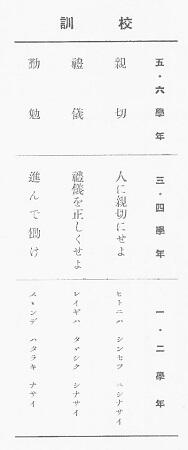 校訓
五・六學年
親切
禮儀
勤勉
三・四學年
人に親切にせよ
禮儀を正しくせよ
進んで働け
一・二學年
ヒトニハ シンセツ ニシナサイ
レイギハ タヾシク シナサイ
スヽンデ ハタラキ ナサイ